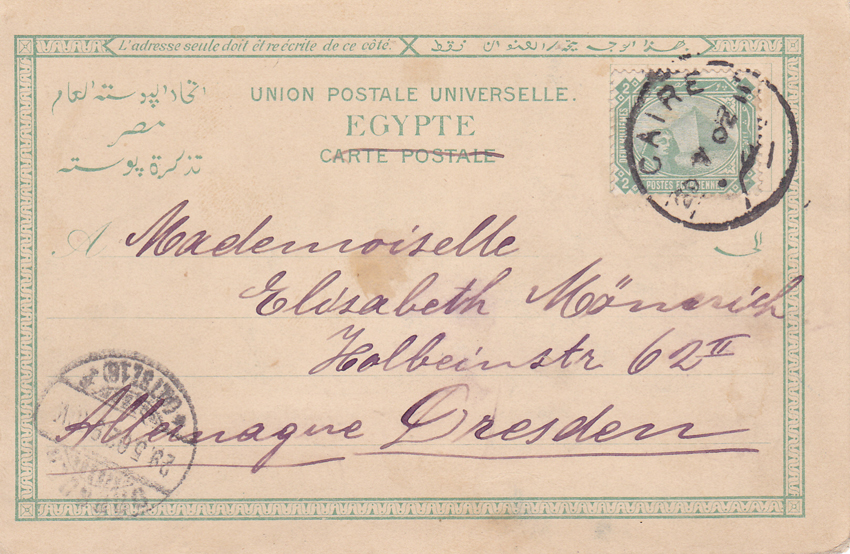 L'adresse seule doit être écrite de ce côté.
هذا الوجه مختص العنوان فقط
اتحاد البوسته العام
مصر
تذكرة بوسته
UNION POSTALE UNIVERSELLE.
EGYPTE
CARTE POSTALE
2 2
2 2
POSTES EGYPTIENNES
CAIRE
A Mademoiselle
الى
Elisabeth Mönnich
Holbeinstr 62 II
Allemagne Dresden
29.5.02